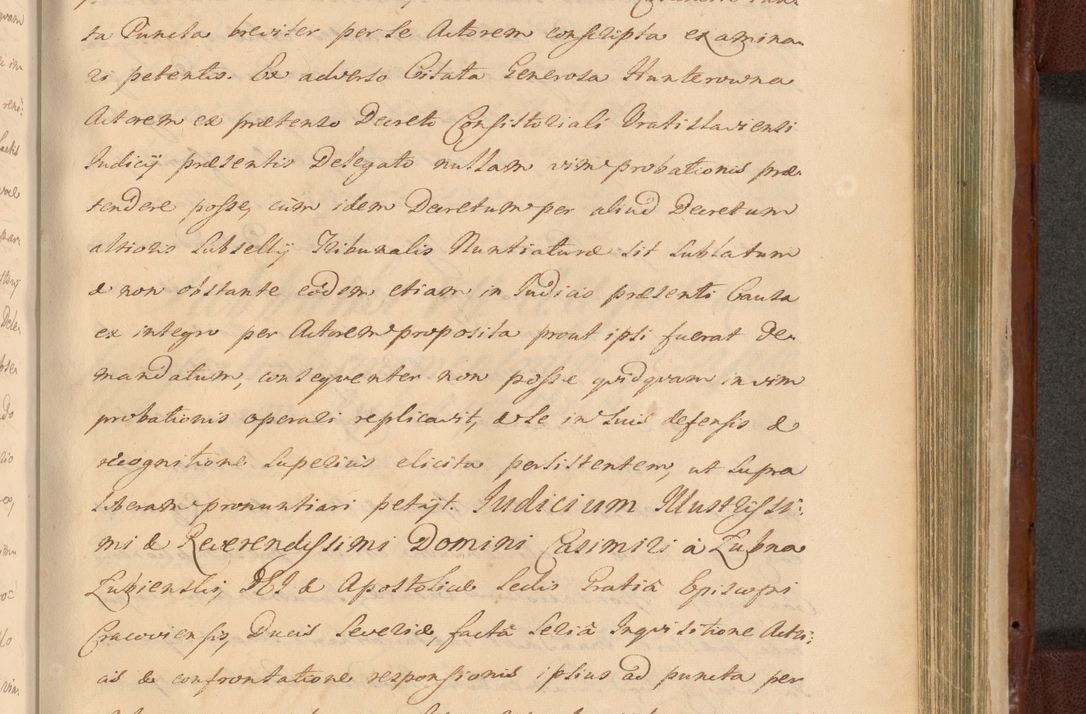 ta Puncta breviter per se Actorem conscripta examina-
ri petentis. Ex adverso Citata Generosa Hunterowna
Actorem ex prætenso Decreto Consistoriali Vratislaviensi
Judicÿ præsentis Delegato nullam vim probationis præ-
tendere posse, cùm idem Decretum per aliud Decretum
altioris Subsellÿ Tribunalis Nuntiaturæ sit sublatum
& non obstante eodem etiam in Judicio præsenti Causa
ex integro per Actorem proposita prout ipsi fuerat de-
mandatum, consequenter non posse quidquam in vim
probationis operari replicavit, & se in suis defensis &
recognitione superius elicita persistentem, ut supra
liberam pronuntiari petÿt. Judicium Illustrissi:
mi & Reverendissimi Domini Casimiri à Łubna
Łubienskij, DEI & Apostolicæ Sedis Gratiâ Episcopi
Cracoviensis, Ducis Severiæ, factâ seriâ Inquisitione Actor:
is & confrontatione responsionis ipsius ad puncta per